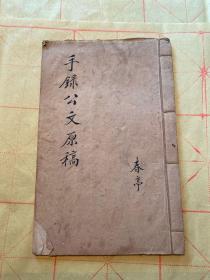 手録公文原稿
春亭